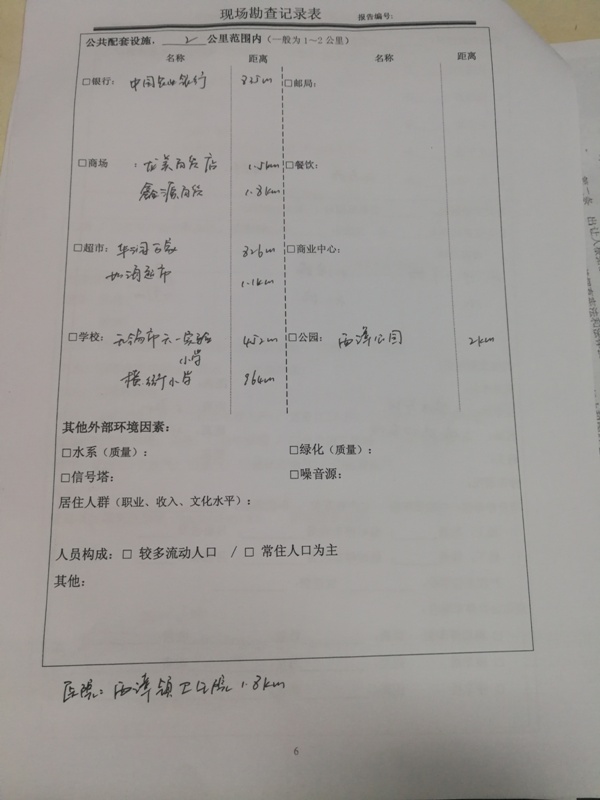 现场勘查记录表 报告编号:
公共配套设施, 2 公里范围内(一般为1~2公里)
名称 距离 名称 距离
□银行: 中国农业银行 325m □邮局:
□商场 : 百货店 1.5km □餐饮:
鑫源百货 1.8km
□超市: 华润万家 326m □商业中心:
超市 1.1km
□学校: 无锡市六一实验 452m □公园: 西漳公园 2km
小学
小学 964m
其他外部环境因素:
□水系(质量): □绿化(质量):
□信号塔: □噪音源:
居住人群(职业、收入、文化水平):
人员构成: □ 较多流动人口 / □ 常住人口为主
其他:
医院: 西漳镇卫生院 1.8km
6